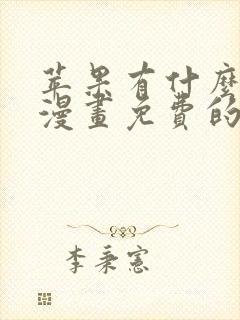 苹果有什麼
漫畫免費的
李秉憲